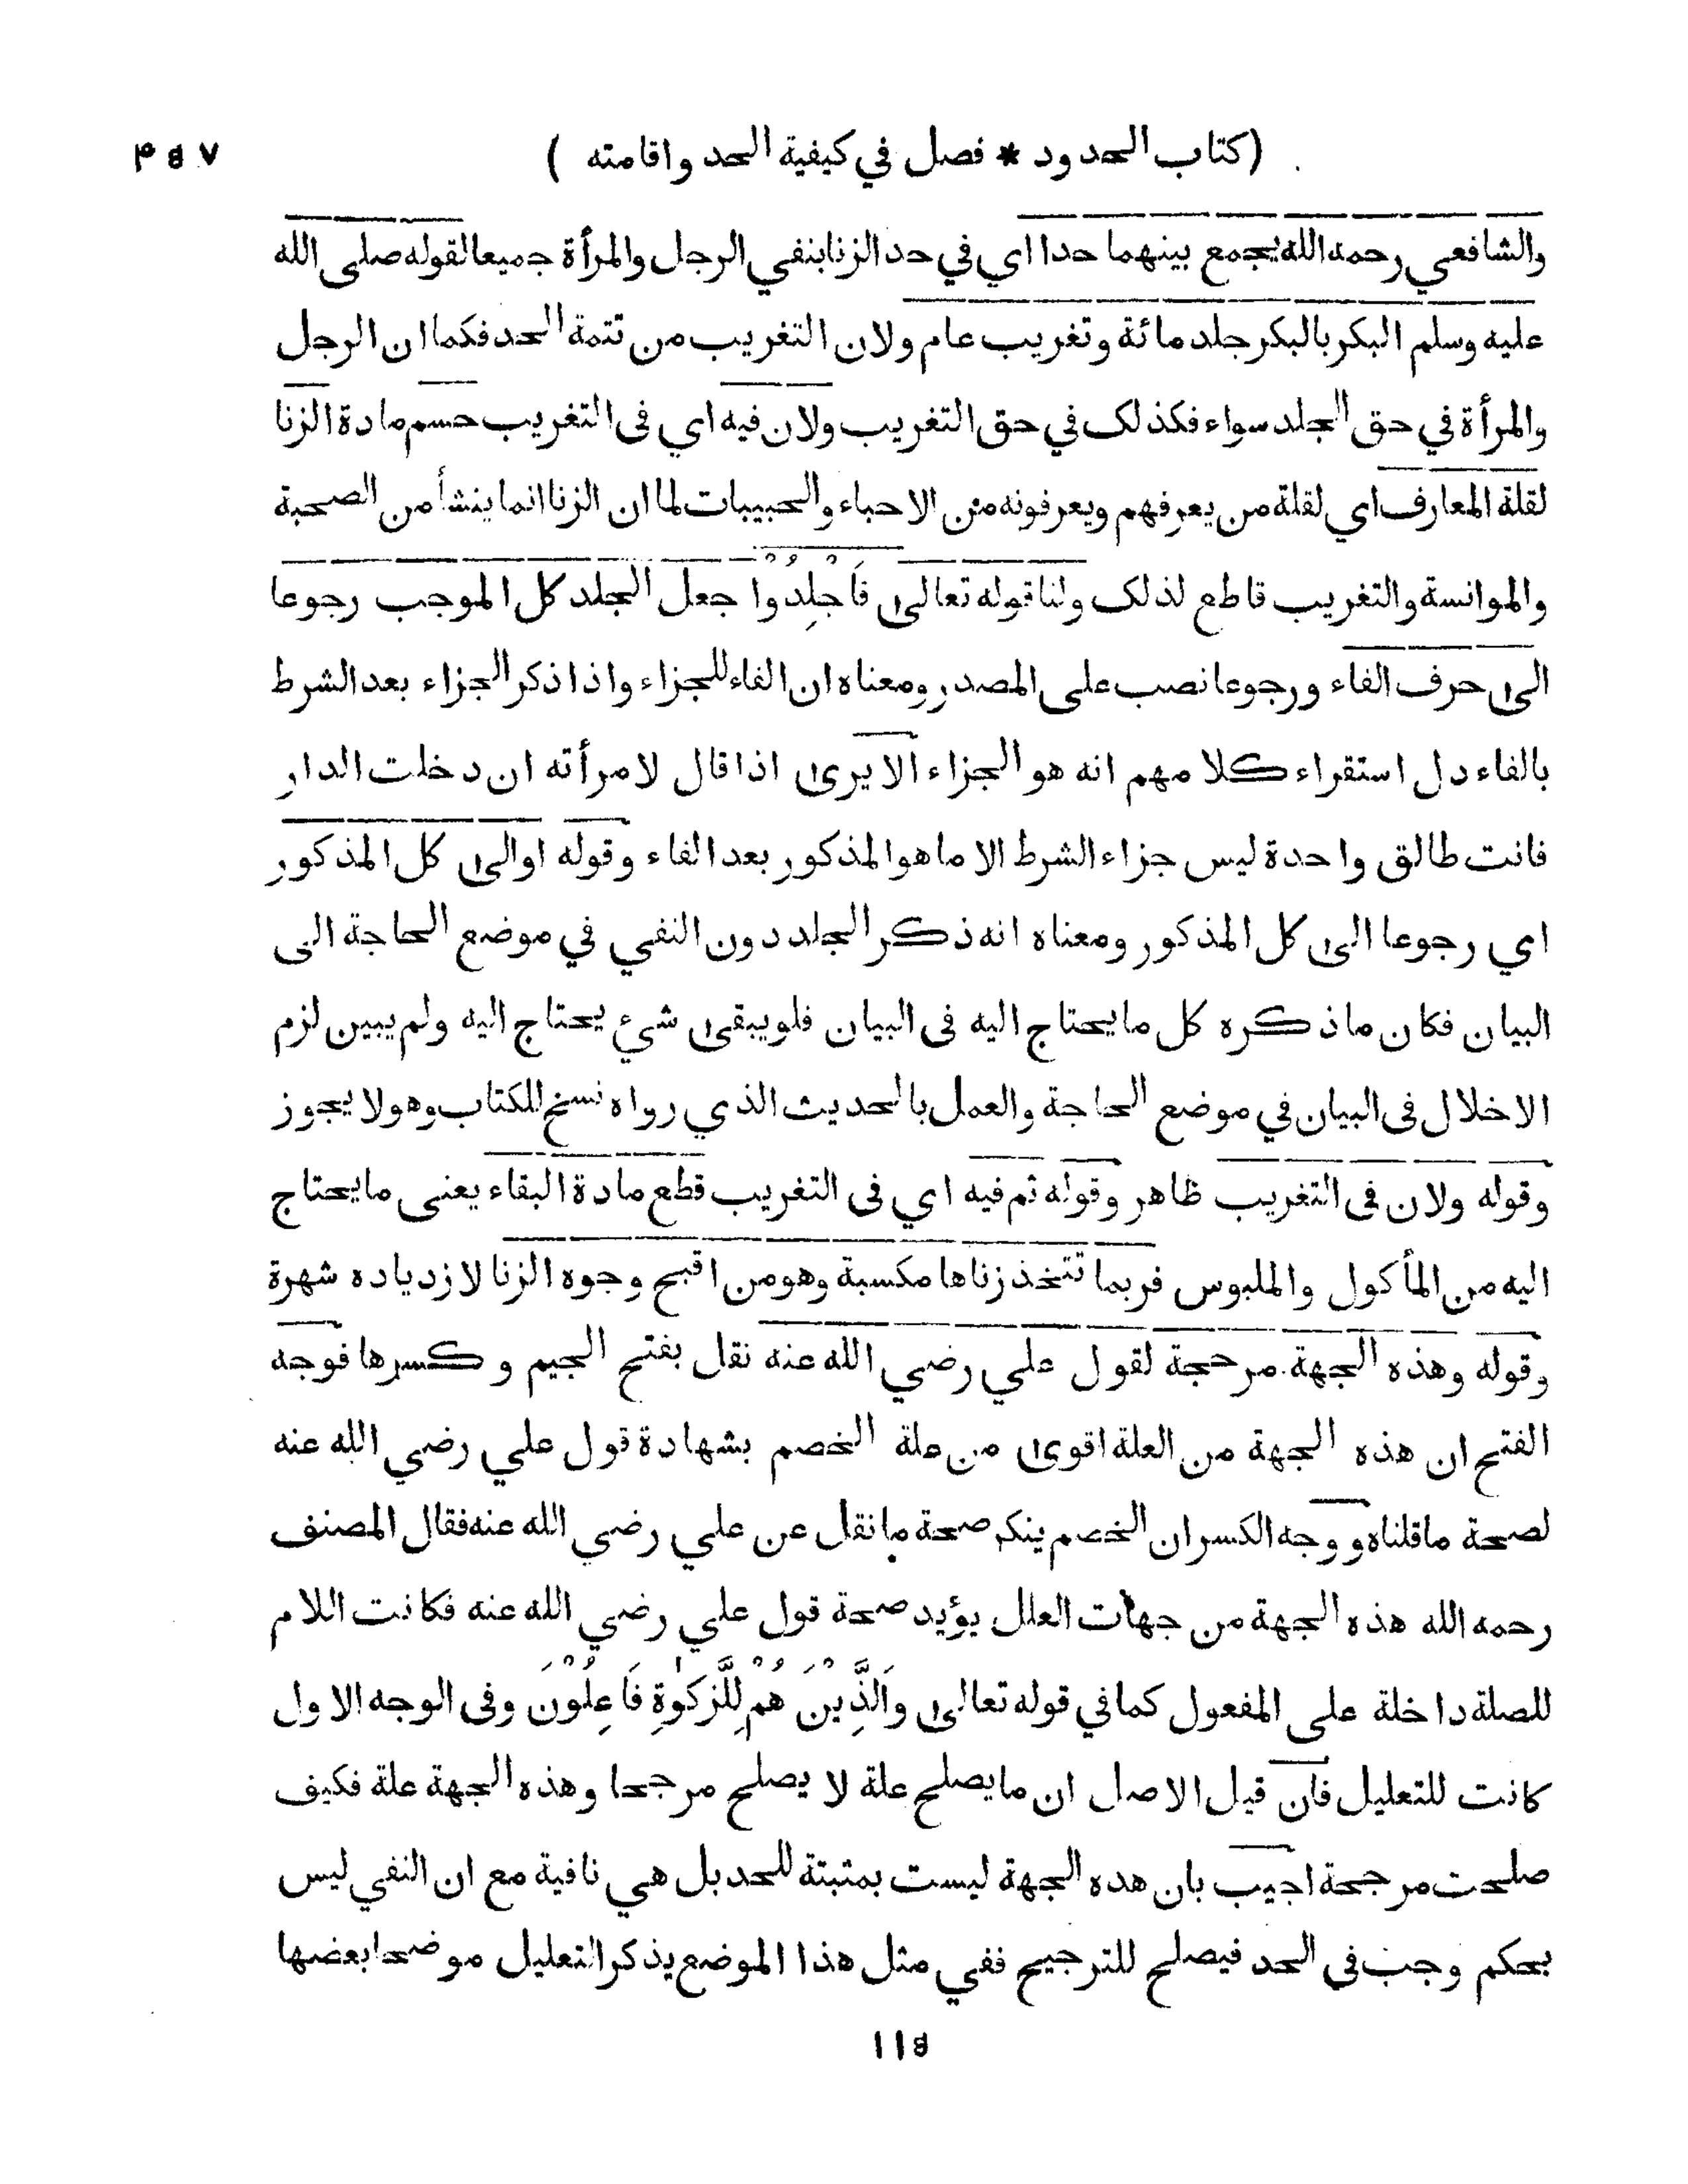 (كتاب الحدود * فصل في كيفية الحد واقامته ) ۴۵۷
والشافعي رحمه الله يجمع بينهما حدا اي في حد الزنا بنفي الرجل والمرأة جميعا لقوله صلى الله
عليه وسلم البكر بالبكر جلد مائة وتغريب عام ولان التغريب من تتمة الحد فكما ان الرجل
والمرأة في حق الجلد سواء فكذلك في حق التغريب ولان فيه اي فى التغريب حسم مادة الزنا
لقلة المعارف اي لقلة من يعرفهم ويعرفونه من الاحباء والحبيبات لما ان الزنا انما ينشأ من الصحبة
والموانسة والتغريب قاطع لذلك ولنا قوله تعالى فَاجْلِدُوْا جعل الجلد كل الموجب رجوعا
الى حرف الفاء ورجوعا نصب على المصدر ومعناه ان الفاء للجزاء واذا ذكر الجزاء بعد الشرط
بالفاء دل استقراء كلامهم انه هو الجزاء الا يرى اذا قال لامرأته ان دخلت الدار
فانت طالق واحدة ليس جزاء الشرط الا ما هو المذكور بعد الفاء وقوله او الى كل المذكور
اي رجوعا الى كل المذكور ومعناه انه ذكر الجلد دون النفي في موضع الحاجة الى
البيان فكان ما ذكره كل ما يحتاج اليه فى البيان فلو يبقى شيء يحتاج اليه ولم يبين لزم
الاخلال فى البيان في موضع الحاجة والعمل بالحديث الذي رواه نسخ للكتاب وهو لا يجوز
وقوله ولان فى التغريب ظاهر وقوله ثم فيه اي فى التغريب قطع مادة البقاء يعنى ما يحتاج
اليه من المأكول والملبوس فربما تتخذ زناها مكسبة وهو من اقبح وجوه الزنا لازدياده شهرة
وقوله وهذه الجهة مرجحة لقول علي رضي الله عنه نقل بفتح الجيم وكسرها فوجه
الفتح ان هذه الجهة من العلة اقوى من علة الخصم بشهادة قول علي رضي الله عنه
لصحة ما قلناه ووجه الكسر ان الخصم ينكر صحة ما نقل عن علي رضي الله عنه فقال المصنف
رحمه الله هذه الجهة من جهات العلل يؤيد صحة قول علي رضي الله عنه فكانت اللام
للصلة داخلة على المفعول كما في قوله تعالى وَالَّذِيْنَ هُمْ لِلَّزكٰوةِ فَاعِلُوْنَ وفى الوجه الاول
كانت للتعليل فان قيل الاصل ان ما يصلح علة لا يصلح مرجحا وهذه الجهة علة فكيف
صلحت مرجحة اجيب بان هده الجهة ليست بمثبتة للحد بل هي نافية مع ان النفي ليس
بحكم وجب فى الحد فيصلح للترجيح ففي مثل هذا الموضع يذكر التعليل موضحا بعضها
۱۱۵